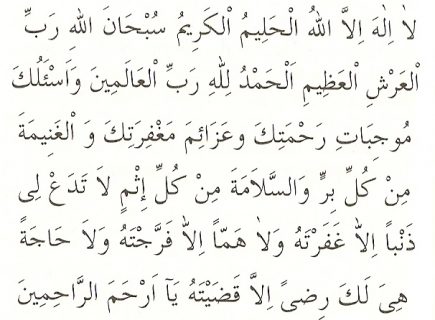 لاٰ اِلٰهَ اِلاَّ اللهُ الْحَلِيمُ الْكَرِيمُ سُبْحَانَ اللهِ رَبِّ
الْعَرْشِ الْعَظِيمِ اَلْحَمْدُ لِلّٰهِ رَبِّ الْعَالَمِينَ وَاَسْئَلُكَ
مُوجِبَاتِ رَحْمَتِكَ وَعَزَائِمَ مَغْفِرَتِكَ وَ الْغَنِيمَةَ
مِنْ كُلِّ بِرٍّ وَالسَّلاَمَةَ مِنْ كُلِّ إِثْمٍ لاَ تَدَعْ لِى
ذَنْباً اِلاَّ غَفَرْتَهُ وَلاٰ هَمّاً اِلاَّ فَرَّجْتَهُ وَلاَ حَاجَةً
هِىَ لَكَ رِضىً اِلاَّ قَضَيْتَهُ يَآ اَرْحَمَ الرَّاحِمِينَ